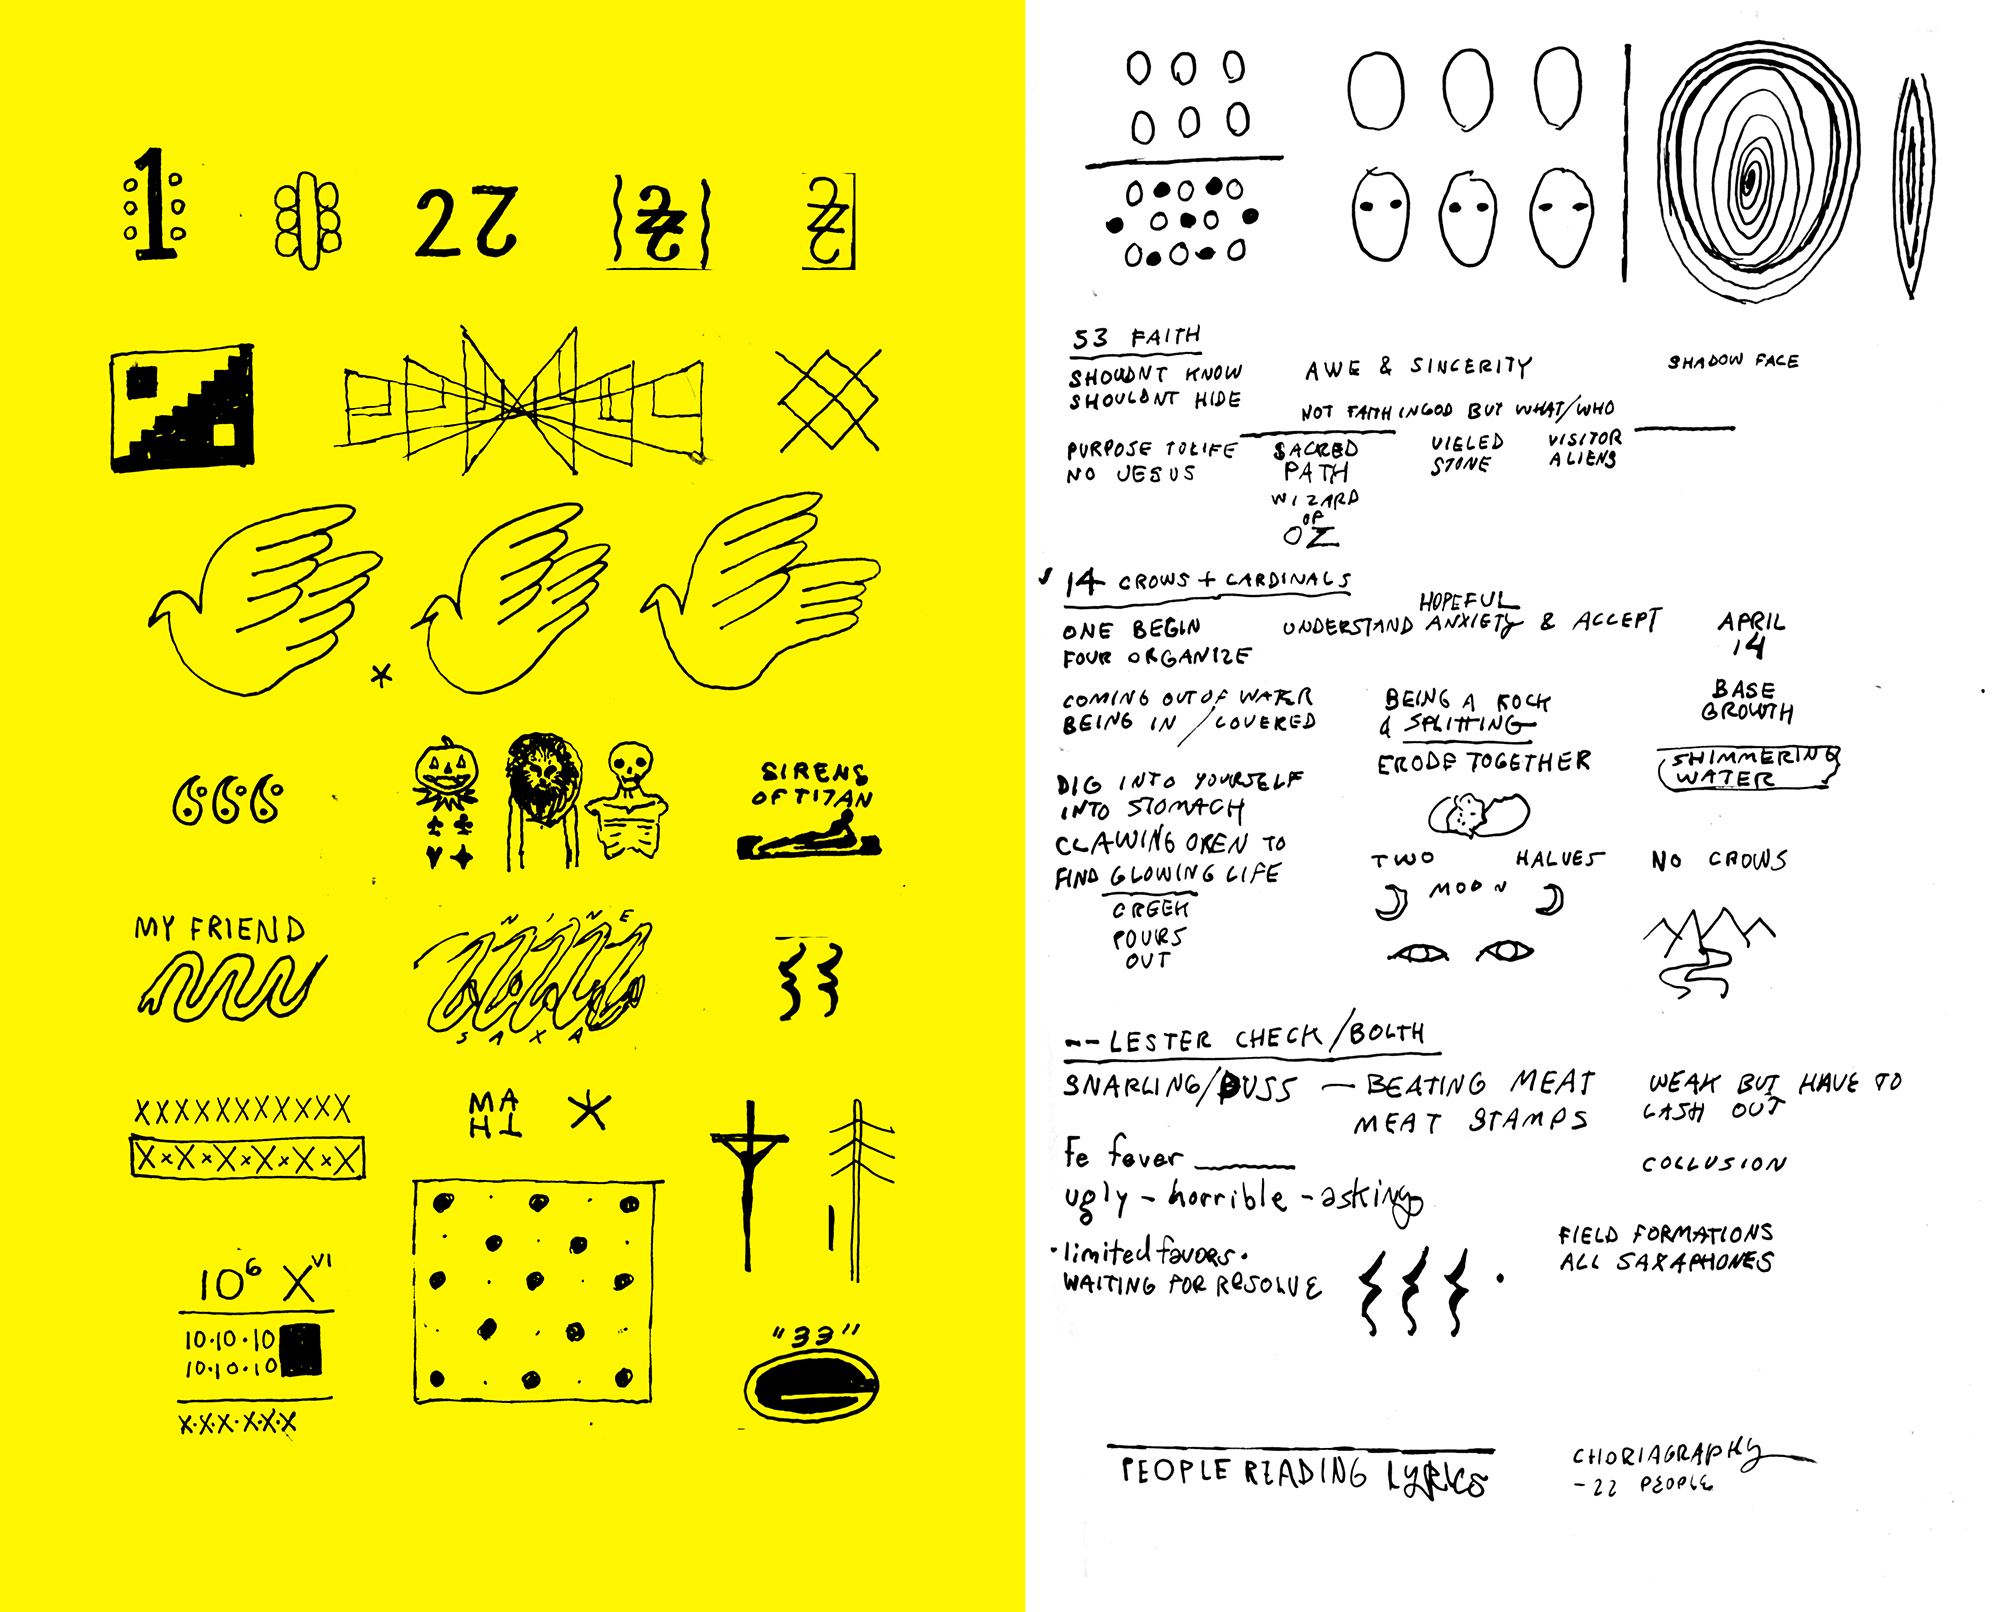 1
22
666
SIRENS
OF TITAN
MY FRIEND
N I N E
S A X A
XXXXXXXXXXX
X×X×X×X×X×X
MA
HI
10⁶ X^VI
10·10·10
10·10·10
X·X·X·X·X·X
"33"
53 FAITH
SHOULDNT KNOW
SHOULDNT HIDE
AWE & SINCERITY
SHADOW FACE
NOT FAITH IN GOD BUT WHAT/WHO
PURPOSE TO LIFE
NO JESUS
SACRED
PATH
WIZARD
OF
OZ
VIELED
STONE
VISITOR
ALIENS
14 CROWS + CARDINALS
ONE BEGIN
FOUR ORGANIZE
HOPEFUL
UNDERSTAND ANXIETY & ACCEPT
APRIL
14
COMING OUT OF WATER
BEING IN / COVERED
BEING A ROCK
& SPLITTING
ERODE TOGETHER
BASE
GROWTH
SHIMMERING
WATER
DIG INTO YOURSELF
INTO STOMACH
CLAWING OPEN TO
FIND GLOWING LIFE
CREEK
POURS
OUT
TWO HALVES
MOON
NO CROWS
-- LESTER CHECK/BOLTH
SNARLING/PUSS — BEATING MEAT
MEAT STAMPS
WEAK BUT HAVE TO
LASH OUT
COLLUSION
Fe fever
ugly - horrible - asking
· limited favors ·
WAITING FOR RESOLVE
FIELD FORMATIONS
ALL SAXAPHONES
PEOPLE READING LYRICS
CHORIAGRAPHY
- 22 PEOPLE